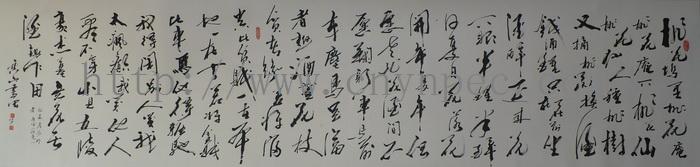 桃花塢里桃花庵
桃花庵下桃花仙
桃花仙人種桃樹
又摘桃花換酒
錢酒醒只在花前坐
酒醉還來花
下眠半醒半醉
日復日花落花
開年復年但
願老死花酒間不
願鞠躬車馬前
車塵馬足富
者趣酒盞花枝
貧者緣若將富
貴比貧賤一在平
地一在天若將
比車馬他得驅馳
我得閑別人笑我
太瘋癲我笑他人
看不穿不見五陵
豪杰墓無花無
酒鋤作田